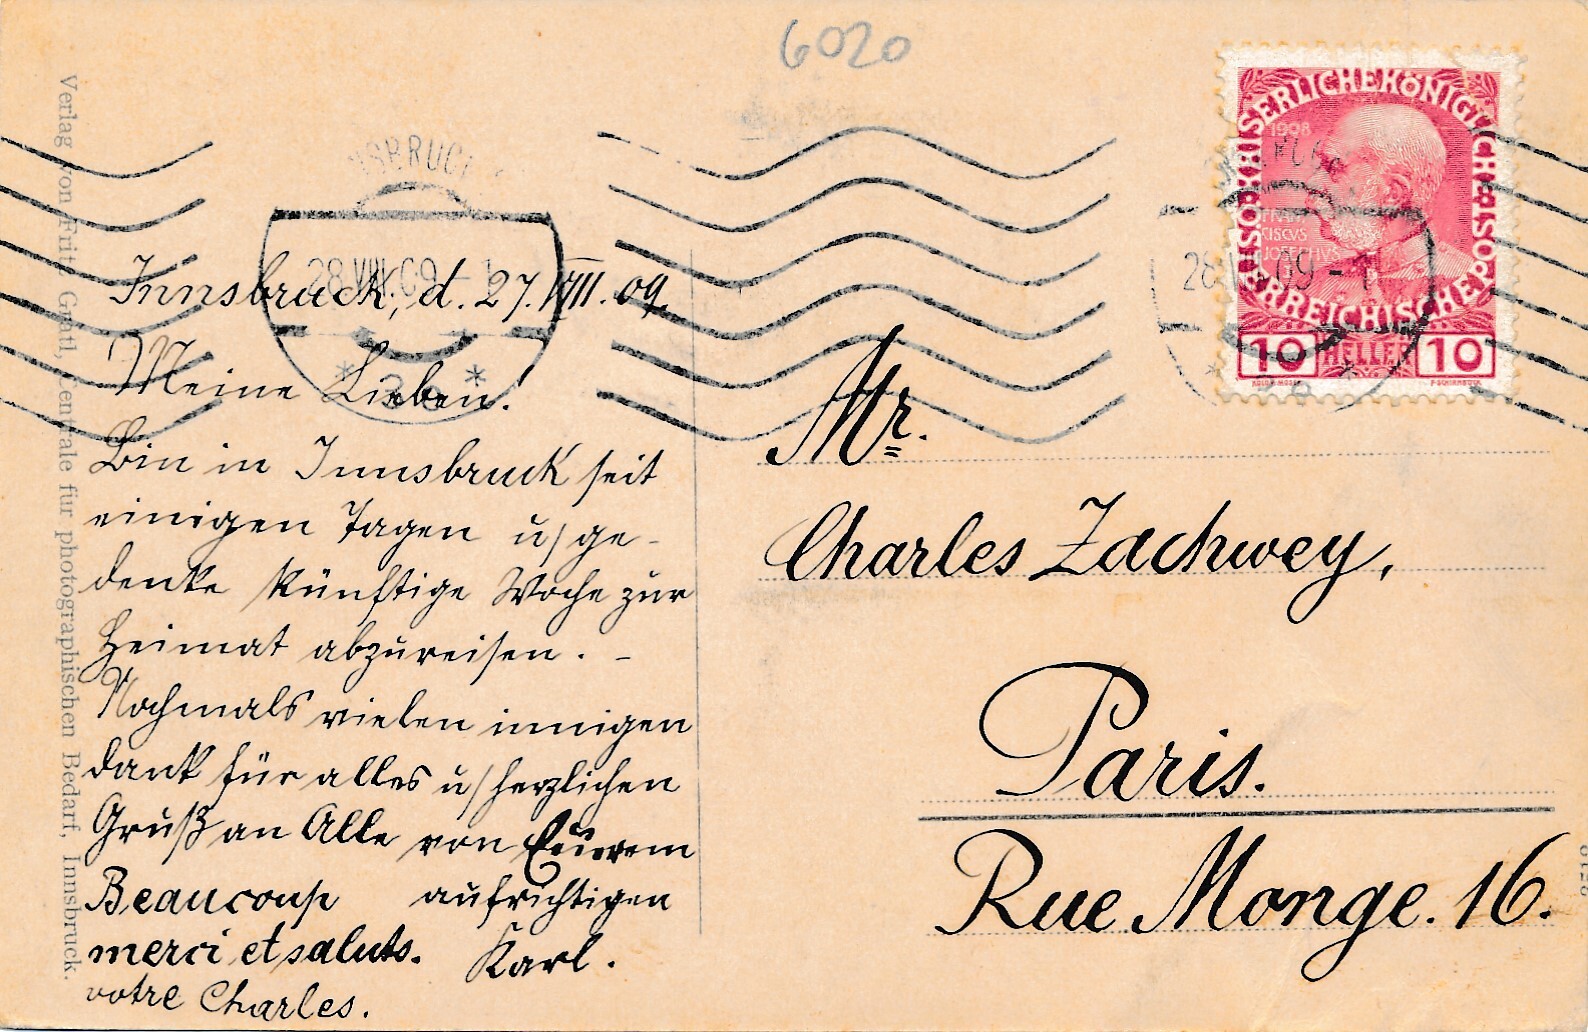 6020
KAISERLICHEKÖNIGLICHE
ÖSTERREICHISCHE POST
1908
FRAN
CISCVS
JOSEPHVS
10 HELLER 10
INNSBRUCK
28.VIII.09-1
Innsbruck, d. 27.VIII.09.
Meine Lieben!
Bin in Innsbruck seit
einigen Tagen u/ ge-
denke künftige Woche zur
Heimat abzureisen. –
Nochmals vielen innigen
Dank für alles u/ herzlichen
Gruß an Alle von Eurem
aufrichtigen
Karl.
Beaucoup
merci et saluts.
votre Charles.
Mr.
Charles Zachwey,
Paris.
Rue Monge. 16.
Verlag von Fritz Gratl, Centrale für photographischen Bedarf, Innsbruck.